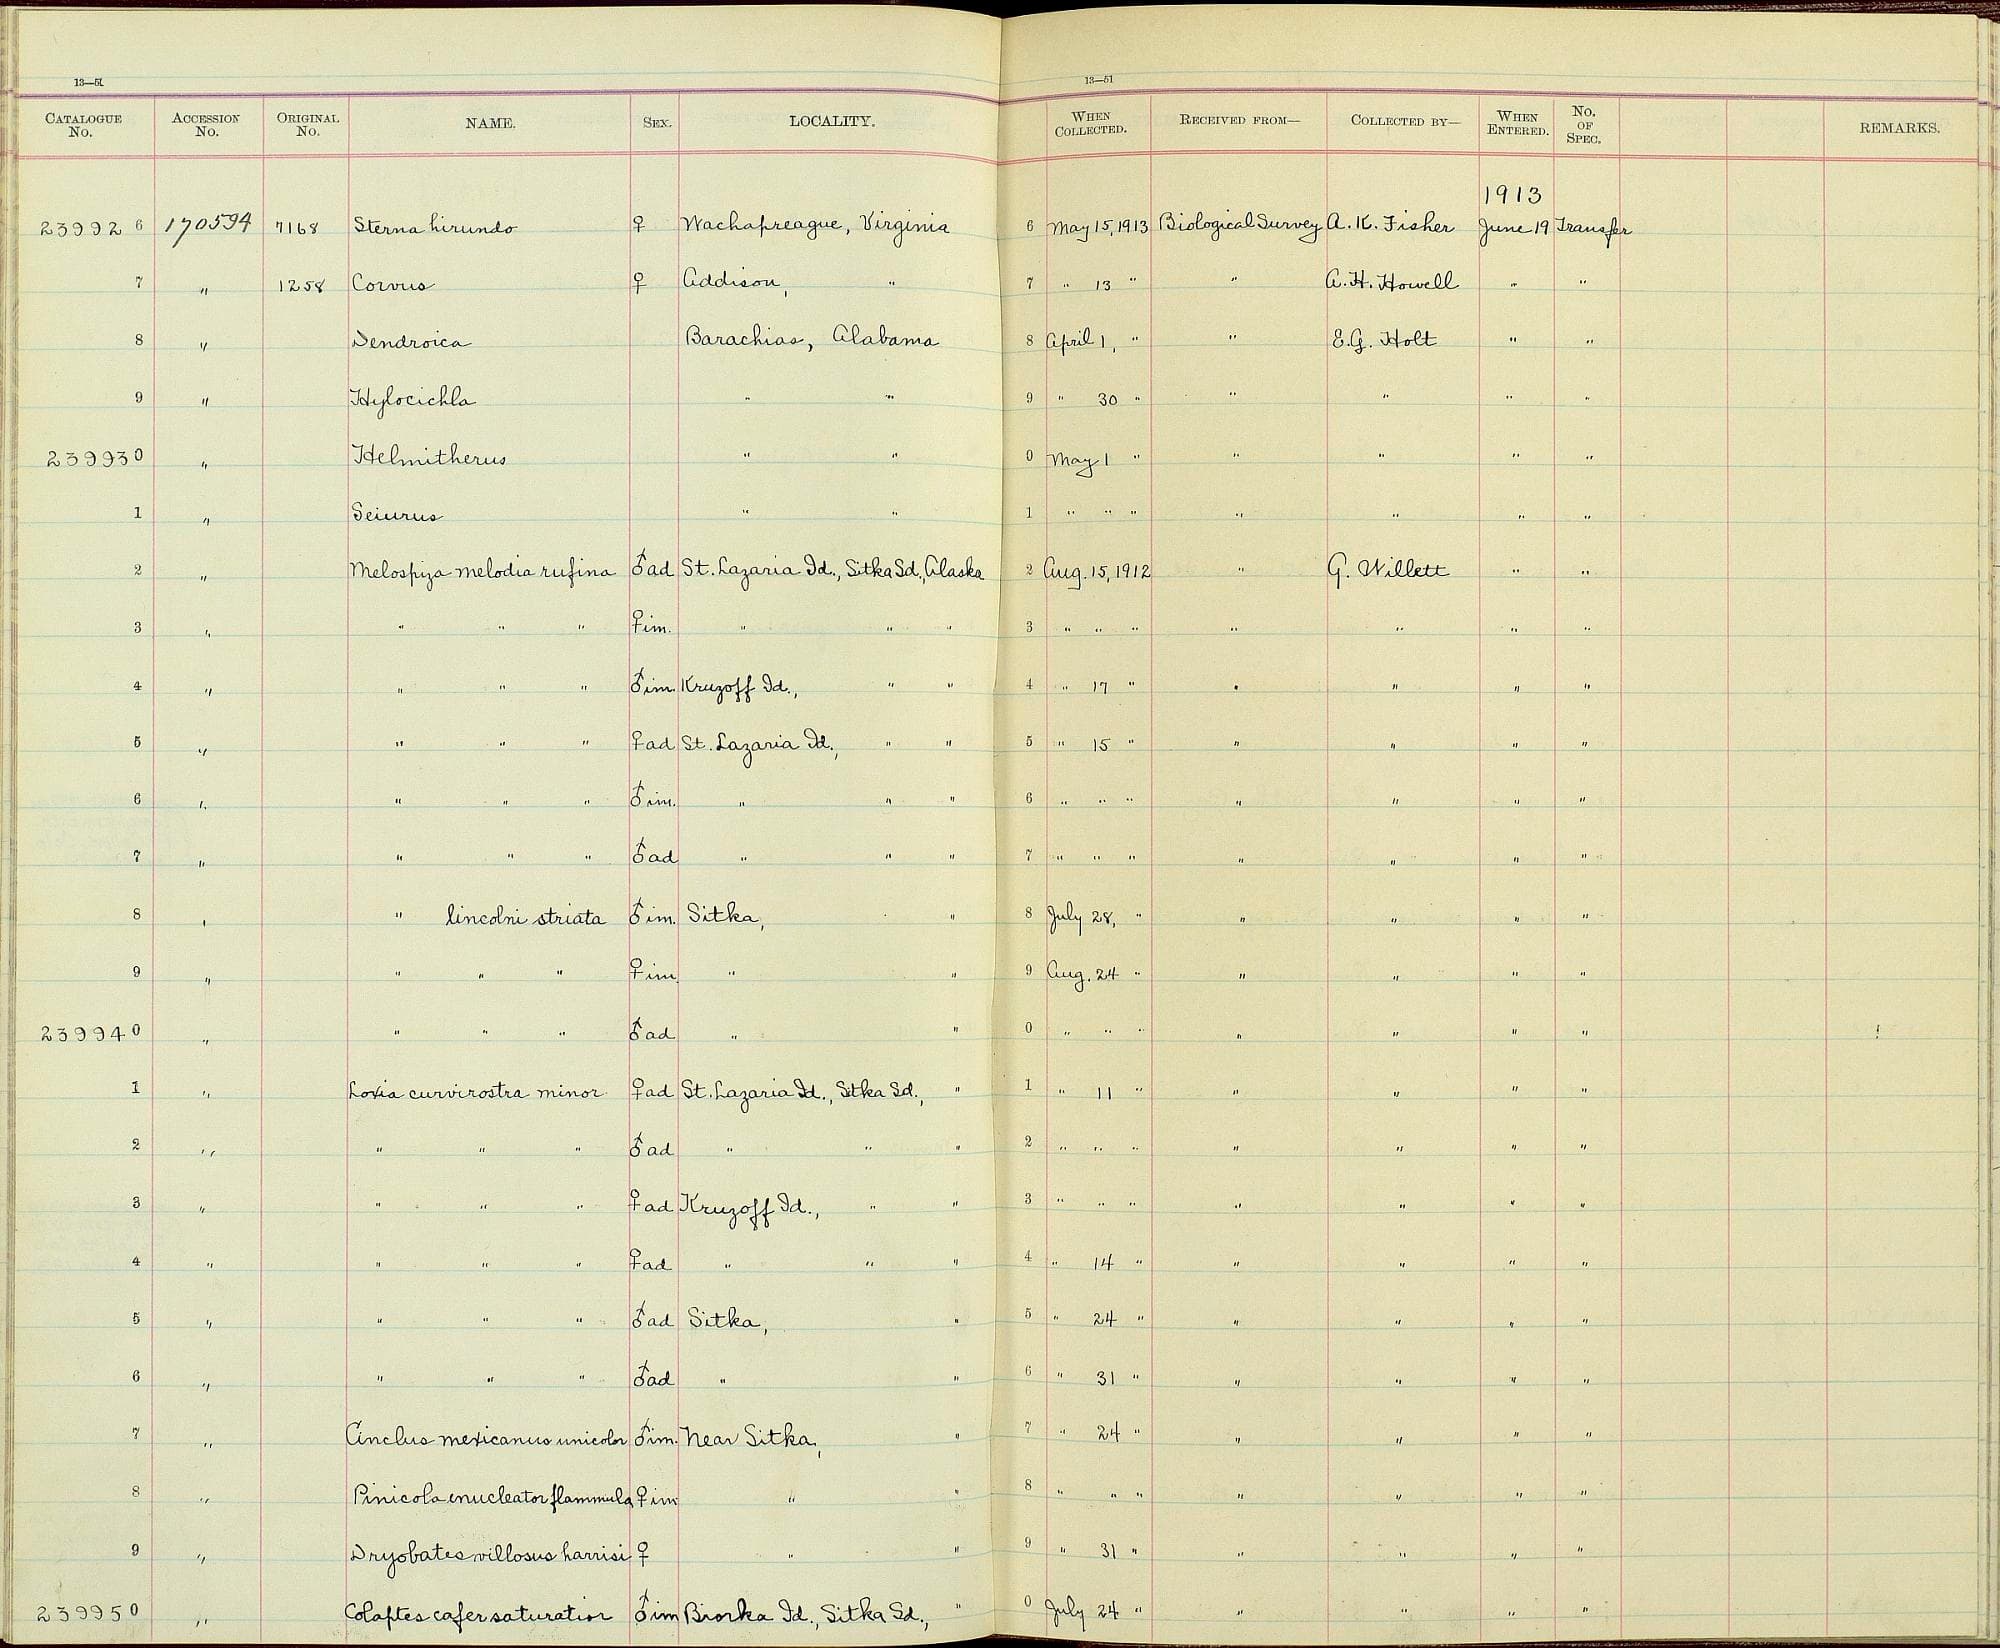 13—51 13—51
CATALOGUE No. ACCESSION No. ORIGINAL No. NAME. SEX. LOCALITY. WHEN COLLECTED. RECEIVED FROM— COLLECTED BY— WHEN ENTERED. No. OF SPEC. REMARKS.
1913
239926 170594 7168 Sterna hirundo ♀ Wachapreague, Virginia 6 May 15, 1913 Biological Survey A. K. Fisher June 19 Transfer
7 " 1258 Corvus ♀ Addison, " 7 " 13 " " A. H. Howell " "
8 " Dendroica Barachias, Alabama 8 April 1, " " E. G. Holt " "
9 " Hylocichla " " 9 " 30 " " " " "
239930 " Helmitherus " " 0 May 1 " " " " "
1 " Seiurus " " 1 " " " " " " "
2 " Melospiza melodia rufina ♂ ad St. Lazaria Id., Sitka Sd., Alaska 2 Aug. 15, 1912 " G. Willett " "
3 " " " " ♀ im. " " " 3 " " " " " " "
4 " " " " ♂ im. Kruzoff Id., " " 4 " 17 " " " " "
5 " " " " ♀ ad St. Lazaria Id., " " 5 " 15 " " " " "
6 " " " " ♂ im. " " " 6 " " " " " " "
7 " " " " ♂ ad " " " 7 " " " " " " "
8 " " lincolni striata ♂ im. Sitka, " 8 July 28, " " " " "
9 " " " " ♀ im. " " 9 Aug. 24 " " " " "
239940 " " " " ♂ ad " " 0 " " " " " " "
1 " Loxia curvirostra minor ♀ ad St. Lazaria Id., Sitka Sd., " 1 " 11 " " " " "
2 " " " " ♂ ad " " " 2 " " " " " " "
3 " " " " ♀ ad Kruzoff Id., " " 3 " " " " " " "
4 " " " " ♀ ad " " " 4 " 14 " " " " "
5 " " " " ♂ ad Sitka, " 5 " 24 " " " " "
6 " " " " ♂ ad " " 6 " 31 " " " " "
7 " Cinclus mexicanus unicolor ♂ im. Near Sitka, " 7 " 24 " " " " "
8 " Pinicola enucleator flammula ♀ im " " 8 " " " " " " "
9 " Dryobates villosus harrisi ♀ " " 9 " 31 " " " " "
239950 " Colaptes cafer saturatior ♂ im Biorka Id., Sitka Sd., " 0 July 24 " " " " "